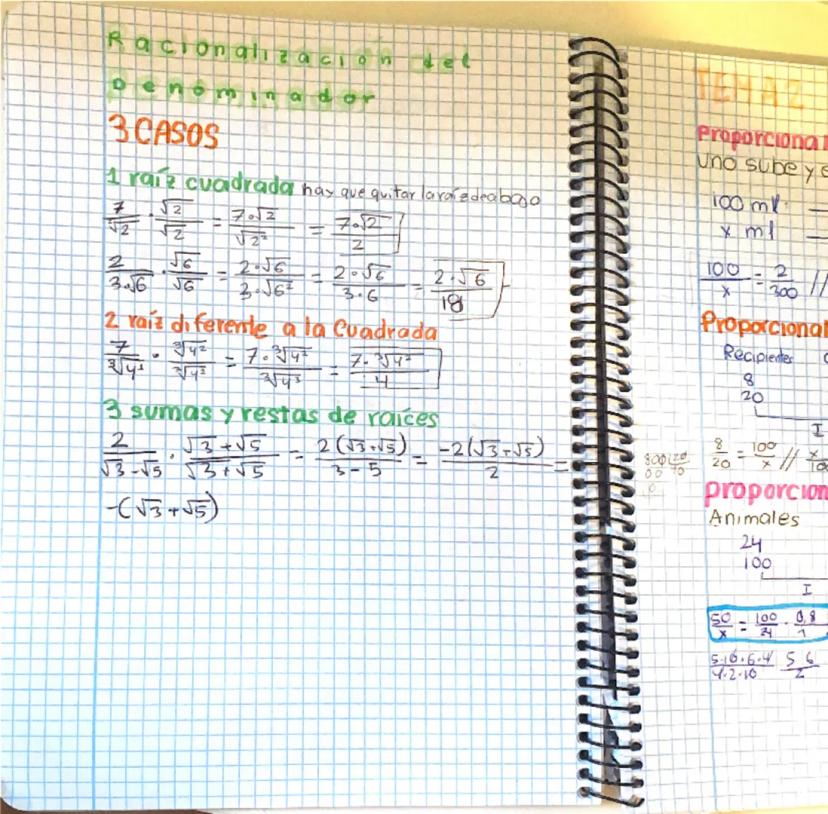 Racionalización del
Denominador
3 CASOS
1 raíz cuadrada hay que quitar la raíz de abajo
7/√2 · √2/√2 = 7·√2/√2² = 7·√2/2
2/3·√6 · √6/√6 = 2·√6/3·√6² = 2·√6/3·6 = 2·√6/18
2 raíz diferente a la Cuadrada
= 7·∛4²/∛4³ = 7·∛4²/4
3 sumas y restas de raíces
2/√3-√5 · √3+√5/√3+√5 = 2(√3+√5)/3-5 = -2(√3+√5)/2 =
-(√3+√5)
TEMA 2
Proporciona
uno sube y
100 ml
x ml
100/x = 2/300 //
Proporcional
Recipientes
8
20
I
8/20 = 100/x //
proporcion
Animales
24
100
I
50/x = 100/24 · 0,8/1
5·10·6·4/4·2·10 5 6/2